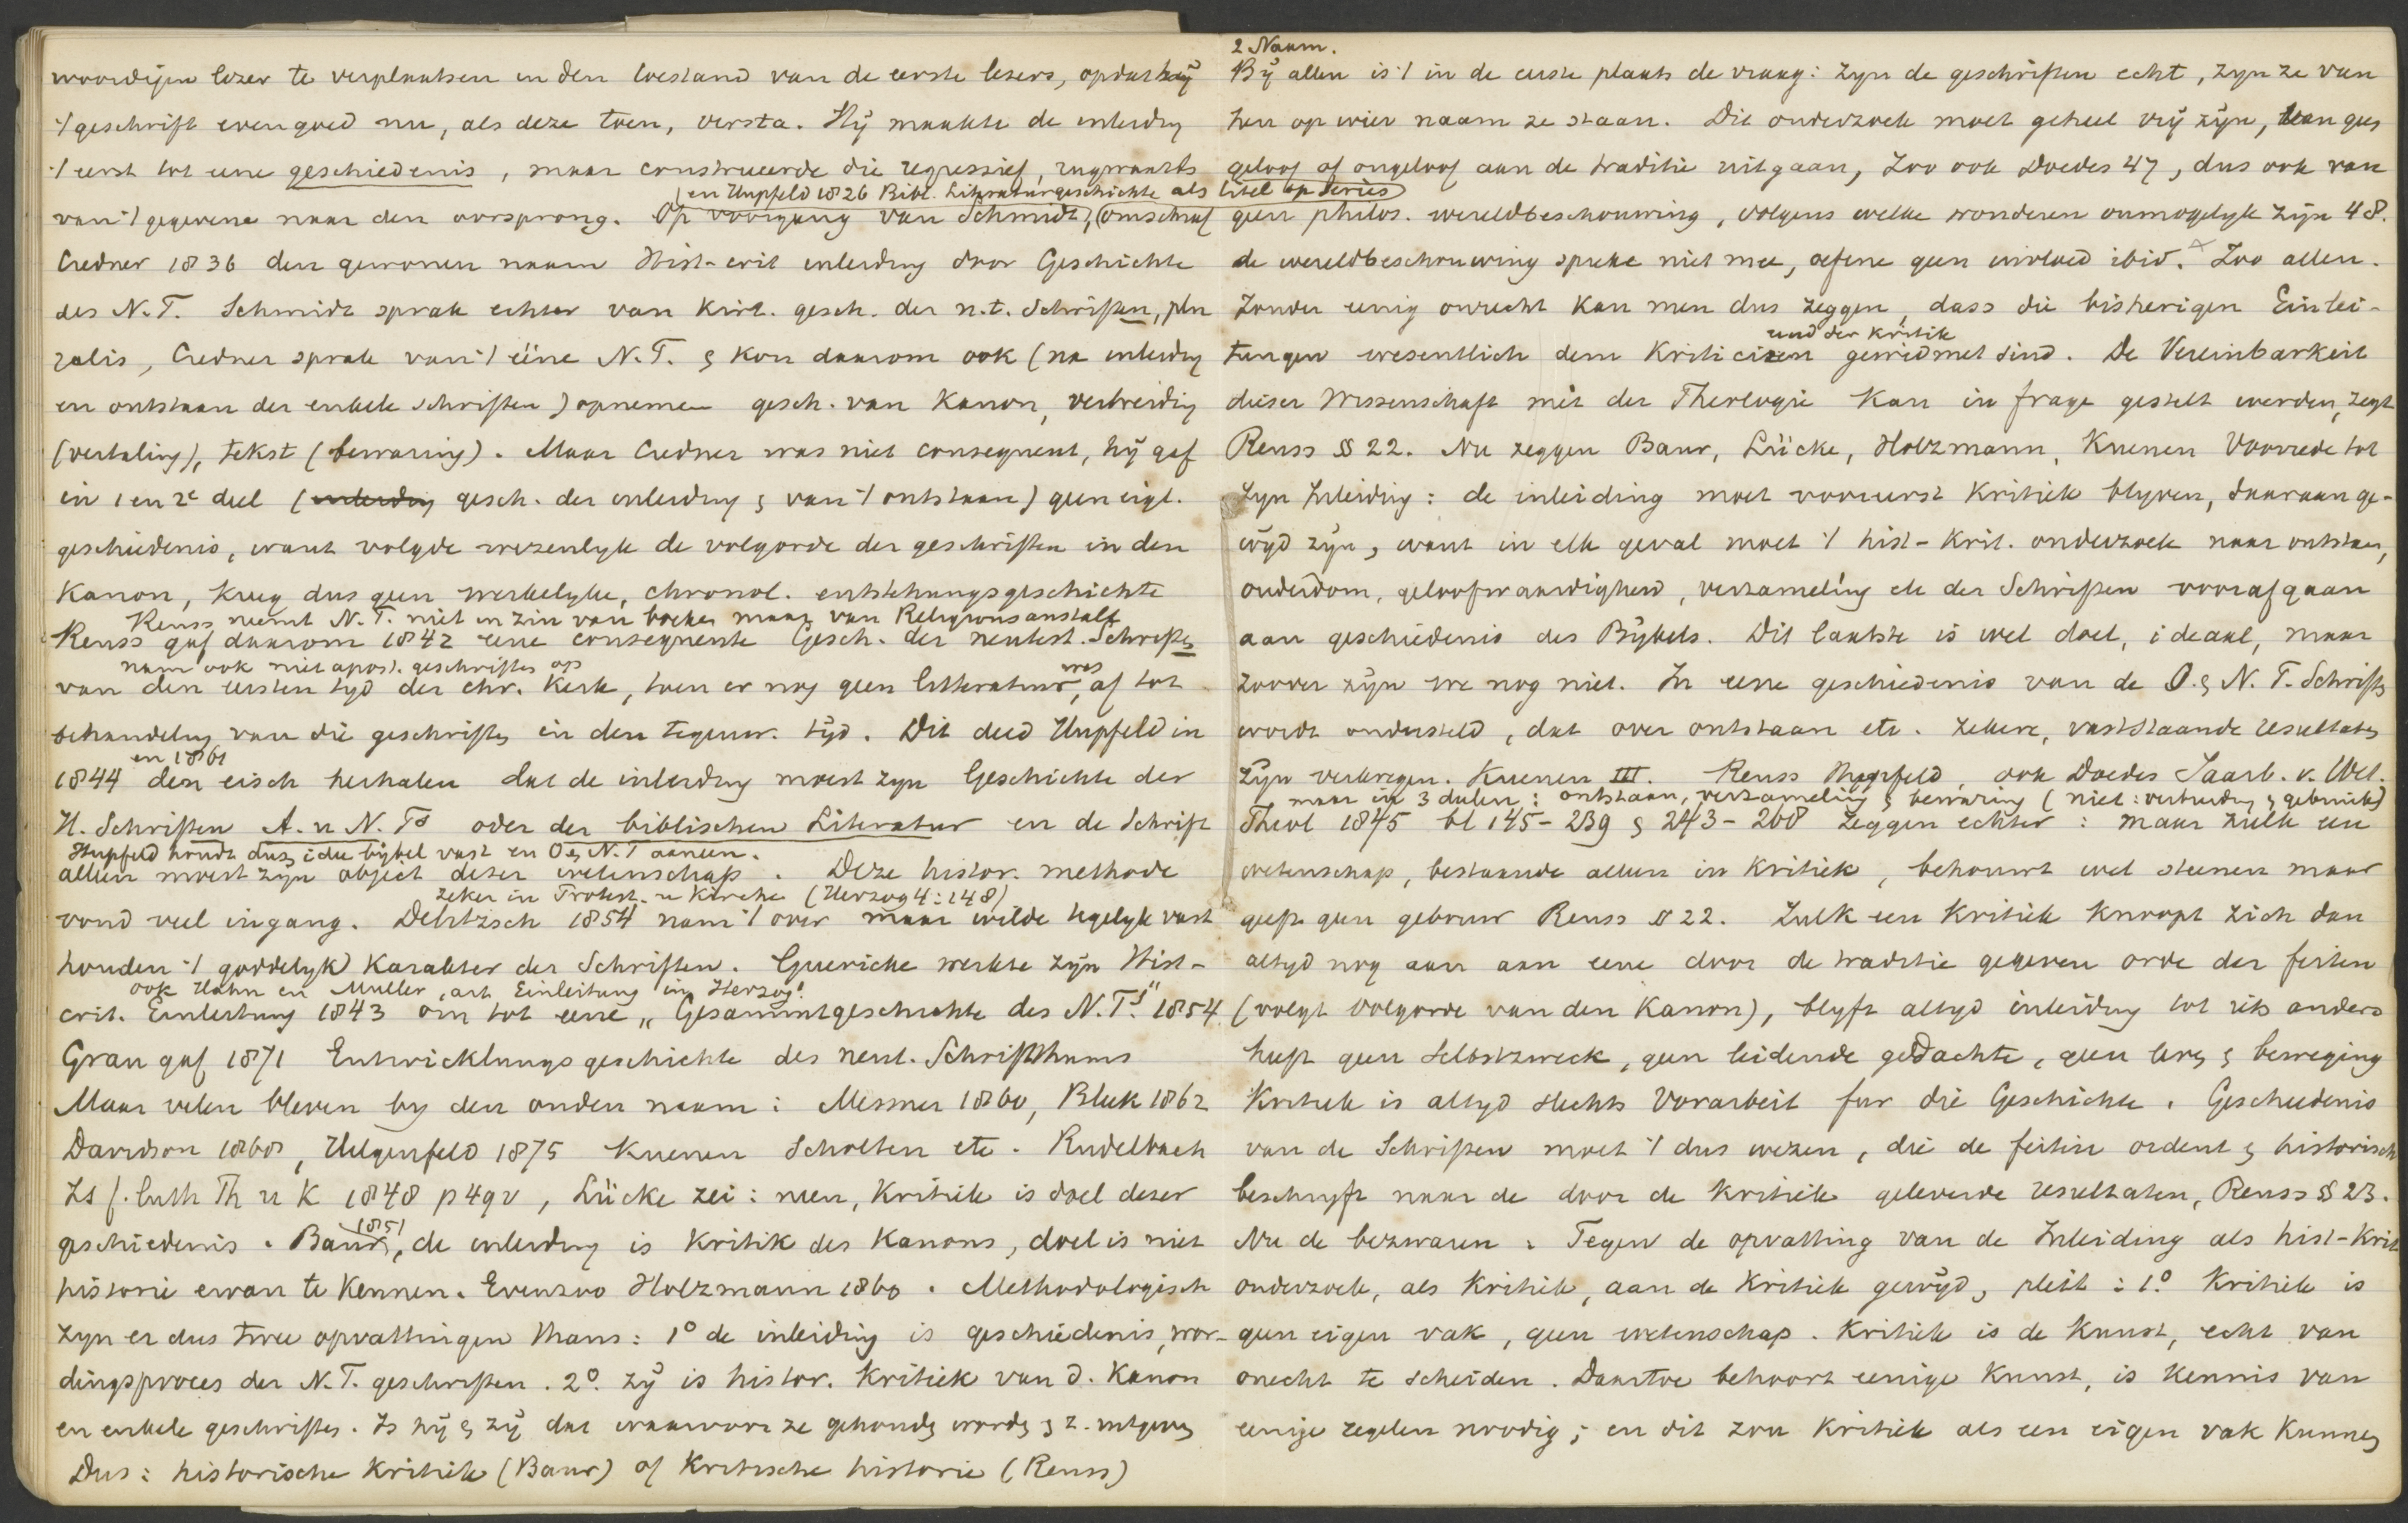 woordigen lezer te verplaatsen in den toestand van de eerste lezers, opdat hij
't geschrift evengoed nu, als deze toen, versta. Hij maakte de inleiding
't eerst tot eene geschiedenis, maar construeerde die regressief, rugwaarts
en Hupfeld 1826 Bibl. Literaturgeschichte als titel op
van 't gegevene naar den oorsprong. Op voorgang van Schmidt, omschreef
Credner 1836 den gewonen naam Hist-crit inleiding door Geschichte
des N.T. Schmidt sprak echter van Krit. gesch. der n.t. Schriften, plu
ralis, Credner sprak van 't ééne N.T. & kon daarom ook (na inleiding
en ontstaan der enkele schriften) opnemen gesch. van Kanon, verbreiding
(vertaling), tekst (bewaring). Maar Credner was niet consequent, hij gaf
in 1 en 2e deel (inleiding gesch. der inleiding & van 't ontstaan) geen eigl.
geschiedenis, want volgde wezenlyk de volgorde der geschriften in den
Kanon, kreeg dus geen werkelyke, chronol. entstehungsgeschichte
Reuss neemt N.T. niet in zin van boeken maar van Religionsanstalt
Reuss gaf daarom 1842 eene consequente Gesch. der neutest. Schriften
nam ook niet apost. geschriften op
van den eersten tyd der chr. Kerk, toen er nog geen litteratuur was, af tot
behandeling van die geschriften in den tegenw. tijd. Dit deed Hupfeld in
en 1861
1844 den eisch herhalen dat de inleiding moest zyn Geschichte der
H. Schriften A. u N. Ts oder der biblischen Literatur en de Schrift
Hupfeld houdt dus, idee bybel vast en O & N.T aaneen.
alleen moest zyn object dezer wetenschap. Deze histor. methode
zeker in Protest. u Kirche (Herzog 4:148)
vond veel ingang. Delitzsch 1854 nam 't over maar wilde tegelyk vast
houden 't goddelyk karakter der Schriften. Guericke werkte zijn Hist-
ook Hahn en Muller, art Einleitung in Herzog!
crit. Einleitung 1843 om tot eene „Gesammtgeschichte des N.T.s" 1854
Grau gaf 1871 Entwicklungsgeschichte des neut. Schriftthums
Maar velen bleven by den ouden naam: Messner 1860, Bleek 1862
Davidson 1868, Hilgenfeld 1875 Kuenen Scholten etc. Rudelbach
Zs f. luth Th u K 1848 p 49v, Lücke zei: neen, Kritiek is doel dezer
geschiedenis. Baur 1851, de inleiding is Kritik des Kanons, doel is niet
historie ervan te kennen. Evenzoo Holzmann 1860. Methodologisch
zyn er dus twee opvattingen thans: 1° de inleiding is geschiedenis, wor-
dingsproces der N.T. geschriften. 2°. zij is histor. Kritiek van d. Kanon
en enkele geschriften. Is hij & zij dat waarvoor ze gehouden worden & z. uitgeven
Dus: historische Kritiek (Baur) of Kritische historie (Reuss)
2 Naam.
By allen is 't in de eerste plaats de vraag: zyn de geschriften echt, zyn ze van
hen op wier naam ze staan. Dit onderzoek moet geheel vrij zijn, van geen
geloof of ongeloof aan de traditie uitgaan, zoo ook Doedes 47, dus ook van
geen philos. wereldbeschouwing, volgens welke wonderen onmogelyk zijn 48.
de wereldbeschouwing spreke niet mee, oefene geen invloed ibid. Zoo allen.
Zonder eenig onrecht kan men dus zeggen, dass die bisherigen Einlei-
und der Kritik
tungen wesentlich dem Kriticizen gewidmet sind. De Vereinbarkeit
dieser Wissenschaft mit der Theologie kan in frage gestelt werden, zegt
Reuss §§ 22. Nu zeggen Baur, Lücke, Holzmann, Kuenen Voorrede tot
zyn Inleiding: de inleiding moet vooreerst Kritiek blyven, daaraan ge-
wijd zijn, want in elk geval moet 't hist-krit. onderzoek naar ontstaan,
ouderdom, geloofwaardigheid, verzameling etc der Schriften voorafgaan
aan geschiedenis des Bijbels. Dit laatste is wel doel, ideaal, maar
zoover zijn we nog niet. In eene geschiedenis van de O. & N.T. Schriften
wordt ondersteld, dat over ontstaan etc. zekere, vaststaande resultaten
zijn verkregen. Kuenen III. Reuss Hupfeld, ook Doedes Jaarb. v. Wet.
maar in 3 deelen: ontstaan, verzameling & bewaring (niet: verbreiding & gebruik)
Theol 1845 bl 145-239 & 243-268 zeggen echter: maar zulk een
wetenschap, bestaande alleen in Kritiek, behouwt wel steenen maar
geeft geen gebouw Reuss § 22. Zulk een Kritiek knoopt zich dan
altyd nog aan aan eene door de traditie gegeven orde der feiten
(volgt volgorde van den Kanon), blyft altyd inleiding tot iets anders
heeft geen Selbstzweck, geen leidende gedachte, geen leven & beweging
Kritiek is altyd slechts Vorarbeit fur die Geschichte. Geschiedenis
van de Schriften moet 't dus wezen, die de feiten ordent & historisch
beschryft naar de door de kritiek geleverde resultaten, Reuss §§ 23.
Nu de bezwaren: Tegen de opvatting van de Inleiding als hist-Krit
onderzoek, als Kritiek, aan de Kritiek gewijd, pleit: 1° Kritiek is
geen eigen vak, geen wetenschap. Kritiek is de Kunst, echt van
onecht te scheiden. Daartoe behoort eenige Kunst, is Kennis van
eenige regelen noodig; en dit zou Kritiek als een eigen vak kunnen